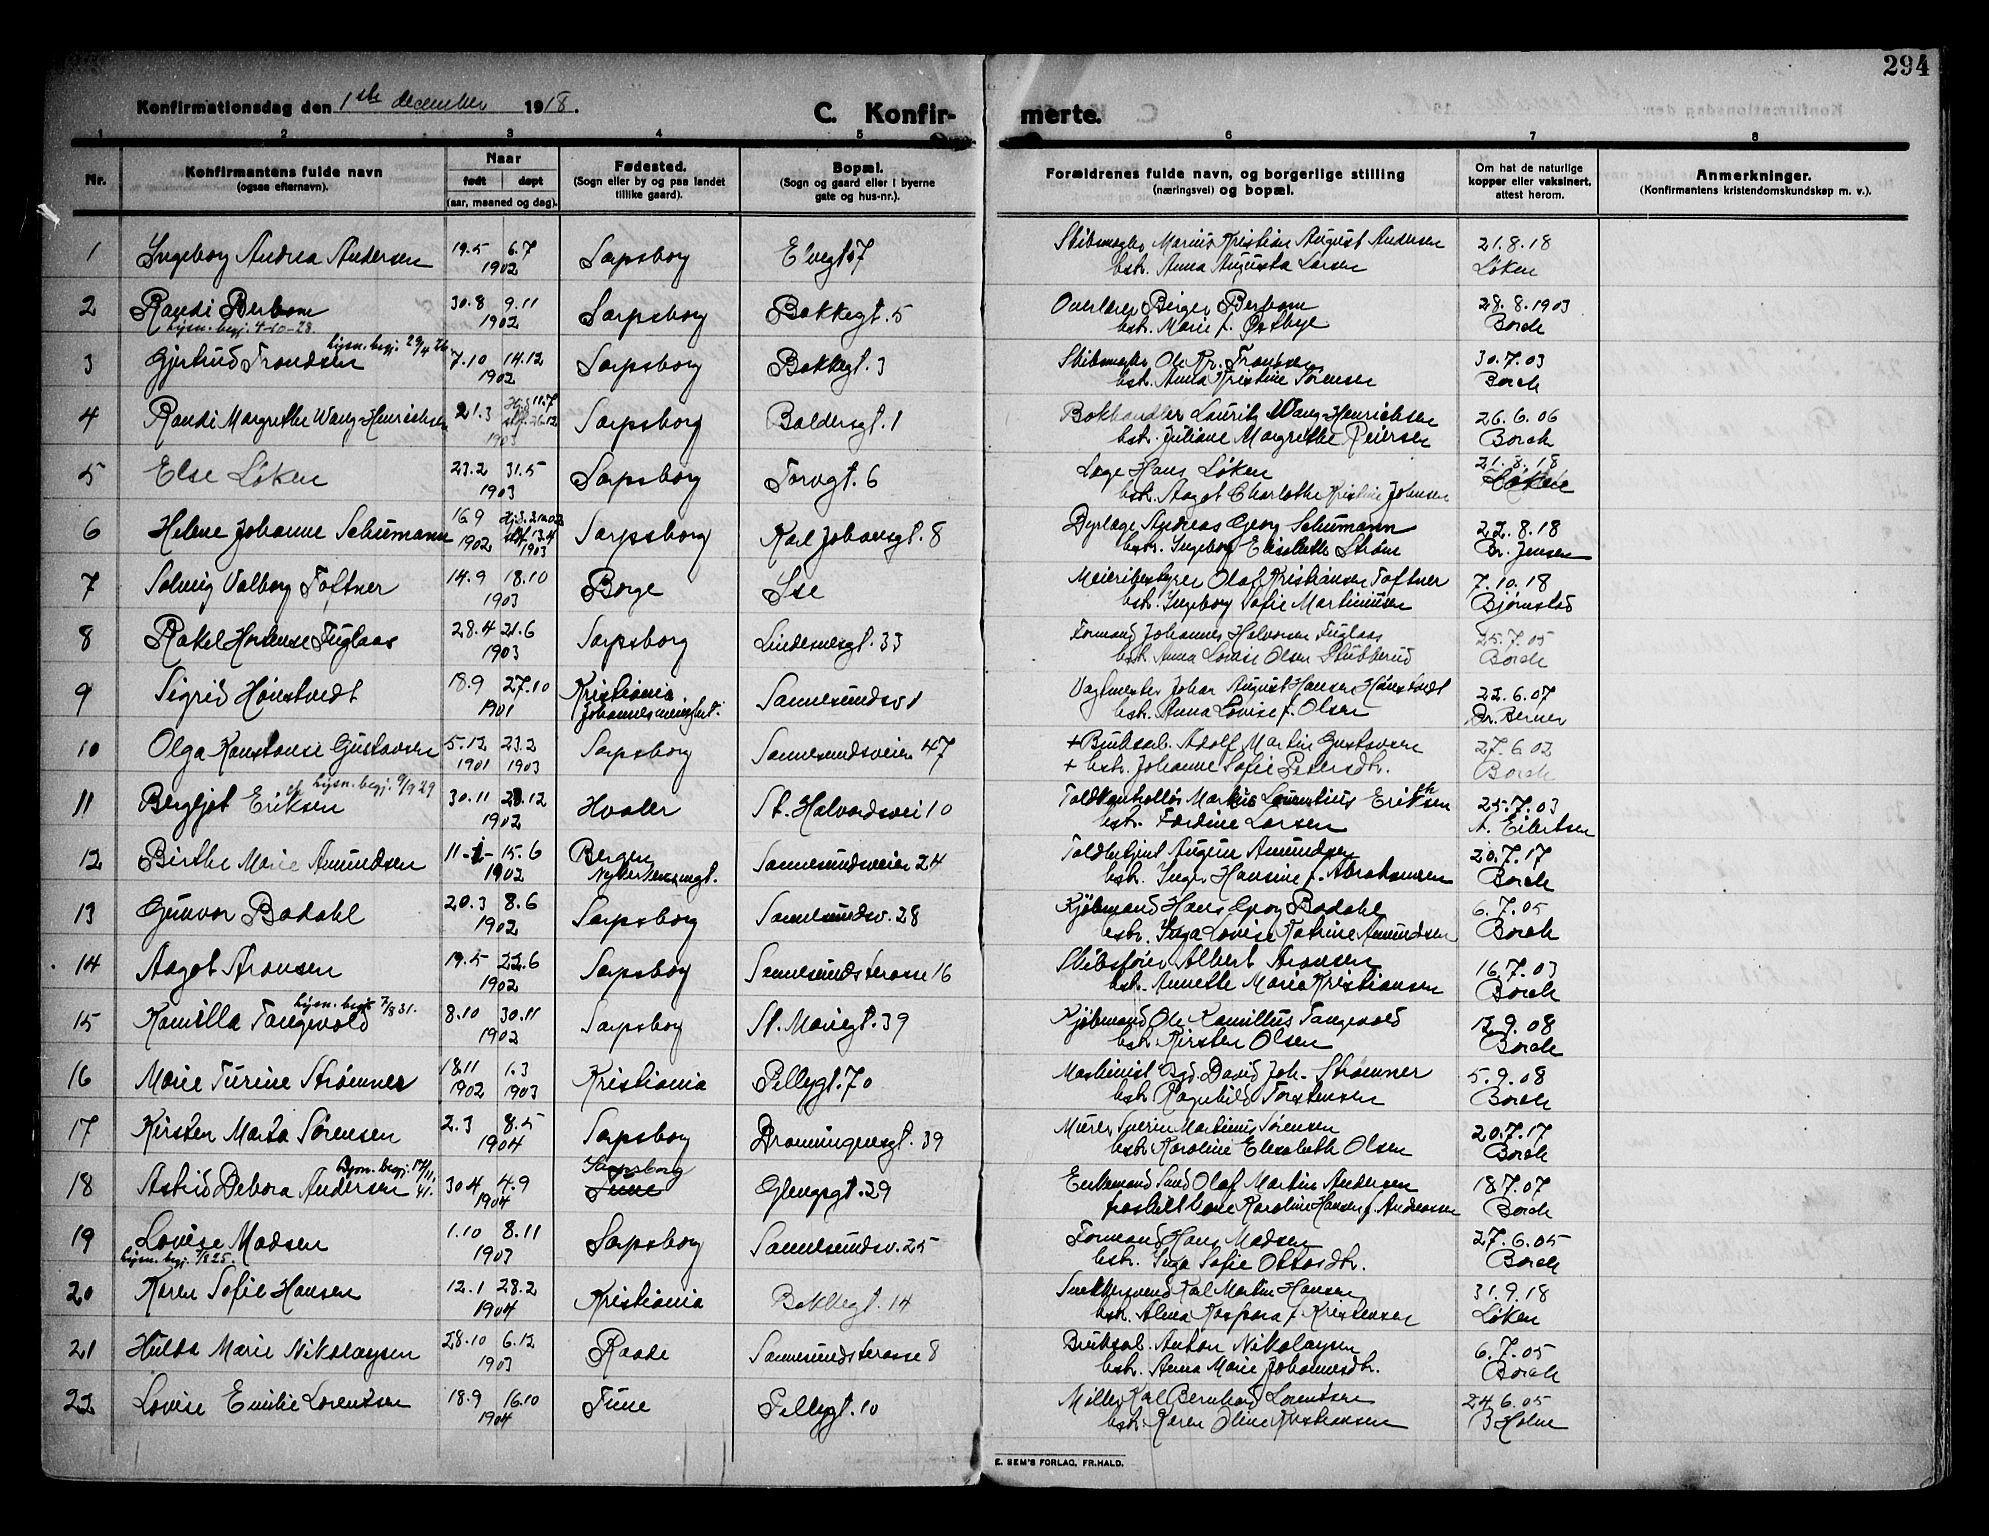 294
Konfirmationsdag den 1ste december 1918.
C. Konfirmerte.
1 2 3 4 5 6 7 8
Nr.
Konfirmantens fulde navn
(ogsaa efternavn).
Naar
født døpt
(aar, maaned og dag).
Fødested.
(Sogn eller by og paa landet
tillike gaard).
Bopæl.
(Sogn og gaard eller i byerne
gate og hus-nr.).
Forældrenes fulde navn, og borgerlige stilling
(næringsvei) og bopæl.
Om hat de naturlige
kopper eller vaksinert,
attest herom.
Anmerkninger.
(Konfirmantens kristendomskundskap m. v.).
1 Ingeborg Andrea Andersen 19.5 6.7 1902 Sarpsborg Elvegt 7 Skibsmægler Marius Kristian August Andersen 21.8.18
hstr. Anna Augusta Larsen Løken
2 Randi Berbom 30.8 9.11 1902 Sarpsborg Bakkegt. 5 Overlærer Birger Berbom 28.8.1903
lysn. begj. 4-10-28 hstr. Marie f. Østbye Borch
lysn. begj. 29/4 26
3 Gjertrud Trondsen 7.10 14.12 1902 Sarpsborg Bakkegt. 3 Skibsmægler Ole Kr. Trondsen 30.7.03
hstr. Anna Kristine Sørensen Borch
4 Randi Margrethe Wang-Henrichsen 21.3 11.7 26.12 1903 Sarpsborg Baldersgt. 1 Bokhandler Lauritz Wang-Henrichsen 26.6.06
hstr. Juliane Margrethe Peiersen Borch
5 Else Løken 23.2 31.5 1903 Sarpsborg Torvgt. 6 Læge Hans Løken 21.8.18
hstr. Aagot Charlotte Kristine Johnsen Løken
6 Helene Johanne Schumann 16.9 1902 13.4 1903 Sarpsborg Karl Johansgt. 8 Dyrlæge Andreas Georg Schumann 22.8.18
hstr. Ingeborg Elisabeth Strøm Dr. Jensen
7 Solveig Valborg Toftner 14.9 18.10 1903 Borge Ise Meieribestyrer Olaf Kristiansen Toftner 7.10.18
hstr. Ingeborg Sofie Martinsen Bjørnstad
8 Rakel Hortense Fuglaas 28.4 21.6 1903 Sarpsborg Lindemsgt. 33 Formand Johannes Halvorsen Fuglaas 25.7.05
hstr. Anna Lovise Olsen Stubberud Borch
9 Sigrid Hønstvedt 18.9 27.10 1901 Kristiania Sannesundsv 1 Vagtmester Johan August Hansen Hønstvedt 22.6.07
hstr. Anna Lovise f. Olsen Dr. Berner
10 Olga Konstanse Gustavsen 5.12 1901 23.2 1903 Sarpsborg Sannesundsveien 47 + Bruksarb. Adolf Martin Gustavsen 27.6.02
+ hstr. Johanne Sofie Petersdtr. Borch
lysn. begj. 9/9 29
11 Bergljot Eriksen 30.11 28.12 1902 Hvaler St. Halvardsvei 10 Toldkontrollør Markus Laurentius Eriksen 25.7.03
hstr. Fardine Larsen A. Eilertsen
12 Birthe Marie Amundsen 11-1- 15.6 1902 Bergen Sannesundsveien 24 Toldbetjent August Amundsen 20.7.17
hstr. Inger Hansine f. Abrahamsen Borch
13 Gunvor Bødahl 20.3 8.6 1902 Sarpsborg Sannesundsv. 28 Kjøbmand Hans Georg Bødahl 6.7.05
hstr. Inga Lovise Katrine Amundsen Borch
14 Aagot Aronsen 19.5 22.6 1902 Sarpsborg Sannesundsterasse 16 Skibsfører Albert Aronsen 16.7.03
hstr. Annette Marie Kristiansen Borch
lysn. begj. 7/8 31.
15 Kamilla Tangevold 8.10 30.11 1902 Sarpsborg St. Mariegt. 39 Kjøbmand Ole Kamillus Tangevold 12.9.08
hstr. Kirsten Olsen Borch
16 Marie Turine Strømner 18.11 1902 1.3 1903 Kristiania Pellygt. 70 Maskinist David Joh. Strømner 5.9.08
hstr. Ragnhild Torstensen Borch
17 Kirsten Marta Sørensen 2.3 8.5 1904 Sarpsborg Dronningensgt. 39 Murer Sverin Martinus Sørensen 20.7.17
hstr. Karoline Elisabeth Olsen Borch
lysn. begj. 14/11. 41.
18 Astrid Debora Andersen 30.4 4.9 1904 Sarpsborg Tune Glengsgt. 29 Enkemand Olaf Martin Andersen 18.7.07
fraskilt Karoline Hansen f. Andreassen Borch
19 Lovise Madsen 1.10 8.11 1903 Sarpsborg Sannesundsv. 25 Formand Hans Madsen 27.6.05
lysn. begj. 1/8 25. hstr. Inga Sofie Ottosdtr. Borch
20 Karen Sofie Hansen 12.1 28.2 1904 Kristiania Bakkegt. 14 Snekkersvend Karl Martin Hansen 31.9.18
hstr. Alma Kaspara f. Kristensen Løken
21 Hulda Marie Nikolaysen 28.10 6.12 1903 Raade Sannesundsterasse 8 Bruksarb. Anton Nikolaysen 6.7.05
hstr. Anna Marie Johannesdtr. Borch
22 Lovise Emilie Lorentsen 18.9 16.10 1904 Tune Pellygt. 10 Møller Karl Bernhard Lorentsen 24.6.05
hstr. Karen Oline Kristiansen B Holm
E. SEM'S FORLAG, FR.HALD.